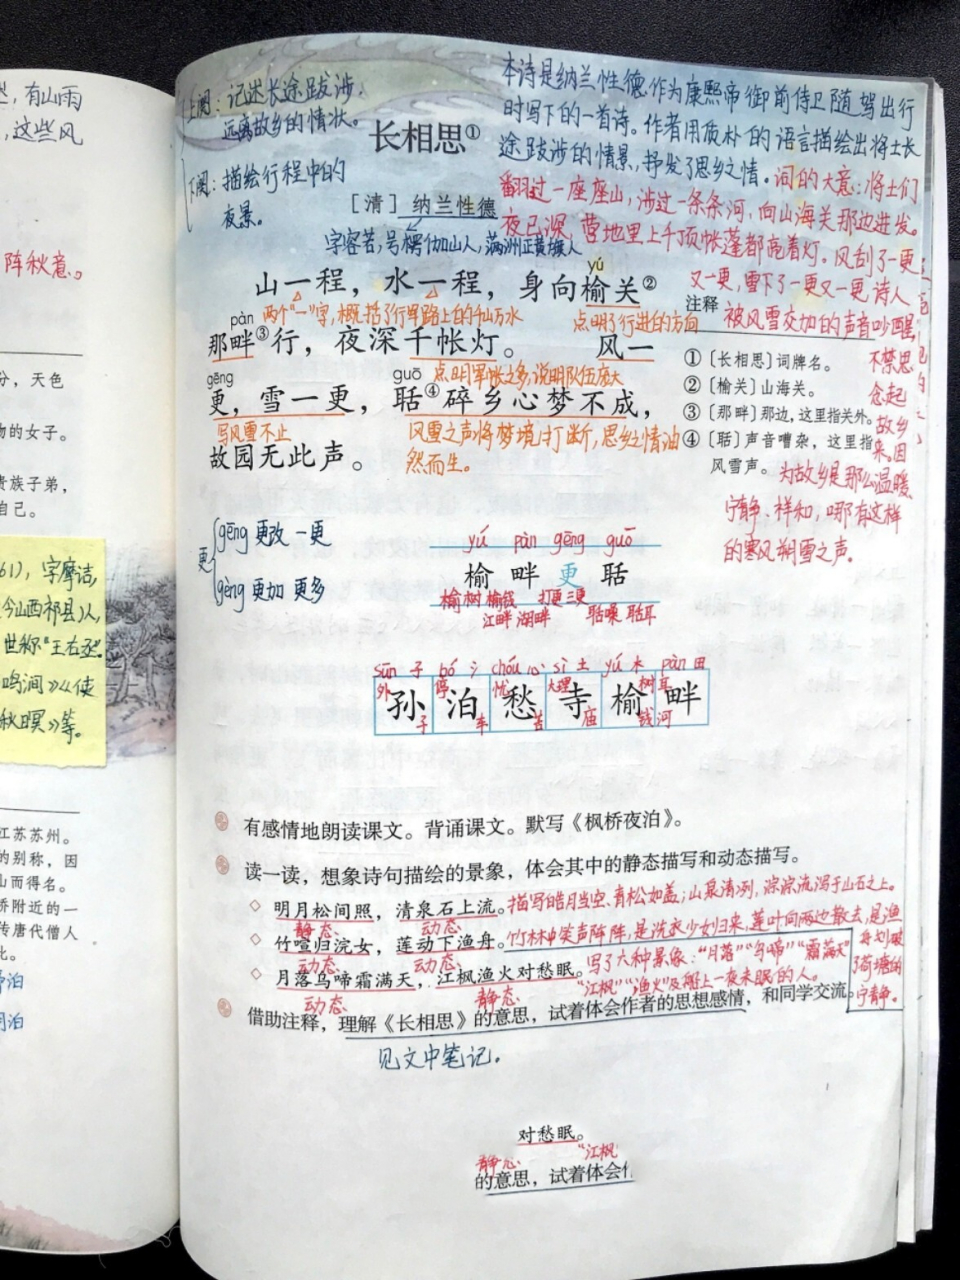 达，有山雨
，这些风
阵秋意。
分，天色
物的女子。
贵族子弟，
自己。
61)，字摩诘，
今山西祁县)人，
世称"王右丞"。
鸣涧》《使
秋暝》等。
江苏苏州。
的别称，因
山而得名。
桥附近的一
传唐代僧人
此。
泊
泊
上阕：记述长途跋涉，
远离故乡的情状。
下阕：描绘行程中的
夜景。
长相思①
本诗是纳兰性德作为康熙帝御前侍卫随驾出行
时写下的一首诗。作者用质朴的语言描绘出将士长
途跋涉的情景，抒发了思乡之情。
词的大意：将士们
翻过一座座山，涉过一条条河，向山海关那边进发。
夜已深，营地里上千顶帐篷都亮着灯。风刮了一更
又一更，雪下了一更又一更，诗人
被风雪交加的声音吵醒，
不禁思
念起
故乡
来。因
为故乡是那么温暖、
宁静、祥和，哪有这样
的寒风朔雪之声。
［清］纳兰性德
字容若，号楞伽山人，满洲正黄旗人
yú
山一程，水一程，身向榆关②
两个"一"字，概括了行军路上的千山万水
点明了行进的方向
pàn
那畔③行，夜深千帐灯。 风一
点明军帐之多，说明队伍庞大
gēng guō
更，雪一更，聒④碎乡心梦不成，
写风雪不止
风雪之声将梦境打断，思乡之情油
然而生。
故园无此声。
注释
①〔长相思〕词牌名。
②〔榆关〕山海关。
③〔那畔〕那边，这里指关外。
④〔聒〕声音嘈杂，这里指
风雪声。
更
gēng 更改 一更
gèng 更加 更多
yú pàn gēng guō
榆 畔 更 聒
榆树 榆钱 打更 三更
江畔 湖畔 聒噪 聒耳
sūn 子 bó 氵 chóu 心 sì 土 yú 木 pàn 田
外 停 忧 大理 树 耳
孙 泊 愁 寺 榆 畔
子 车 苦 庙 钱 河
有感情地朗读课文。背诵课文。默写《枫桥夜泊》。
读一读，想象诗句描绘的景象，体会其中的静态描写和动态描写。
◇ 明月松间照，清泉石上流。
描写皓月当空、青松如盖；山泉清冽，淙淙流泻于山石之上。
静态 动态
◇ 竹喧归浣女，莲动下渔舟。
竹林中笑声阵阵，是洗衣少女归来，莲叶向两边散去，是渔
舟划破
了荷塘的
宁静。
动态 动态
◇ 月落乌啼霜满天，江枫渔火对愁眠。
写了六种景象："月落""乌啼""霜满天"
"江枫""渔火"及船上一夜未眠的人。
动态 静态
借助注释，理解《长相思》的意思，试着体会作者的思想感情，和同学交流。
见文中笔记。
对愁眠。
静态 "江枫
的意思，试着体会作